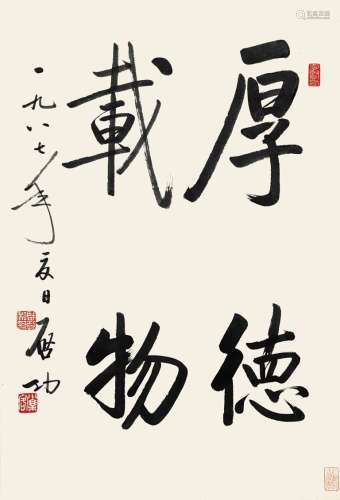 厚德
載物
一九八七年夏日启功